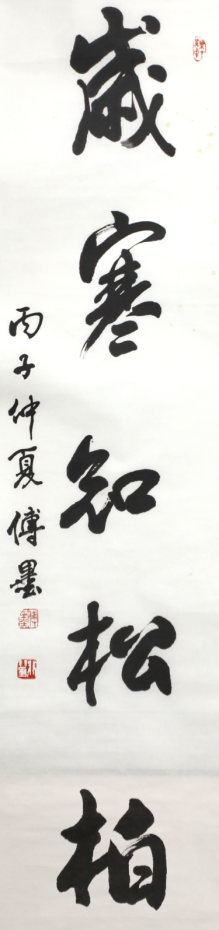 歲寒知松柏
丙子仲夏傅墨